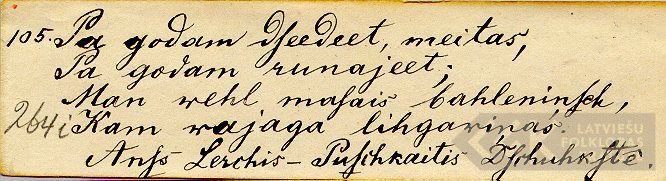 105. Pa godam dseedeet, meitas,
Pa godam runajeet;
Man wehl masais bahleninsch,
264i Kam wajaga lihgavinas.
Anss Lerchis-Puschkaitis Dschuhkste.
LATVIEŠU
FOLKL